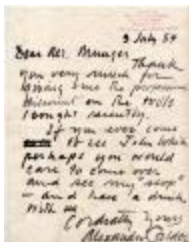 3 July 54
Dear Mr. Munger
Thank
you very much for
giving me the
discount on the tools
I bought recently.
If you ever come
to see John
perhaps you would
care to come over
and see my shop
— and have a drink
with us
Cordially yours
Alexander Calder